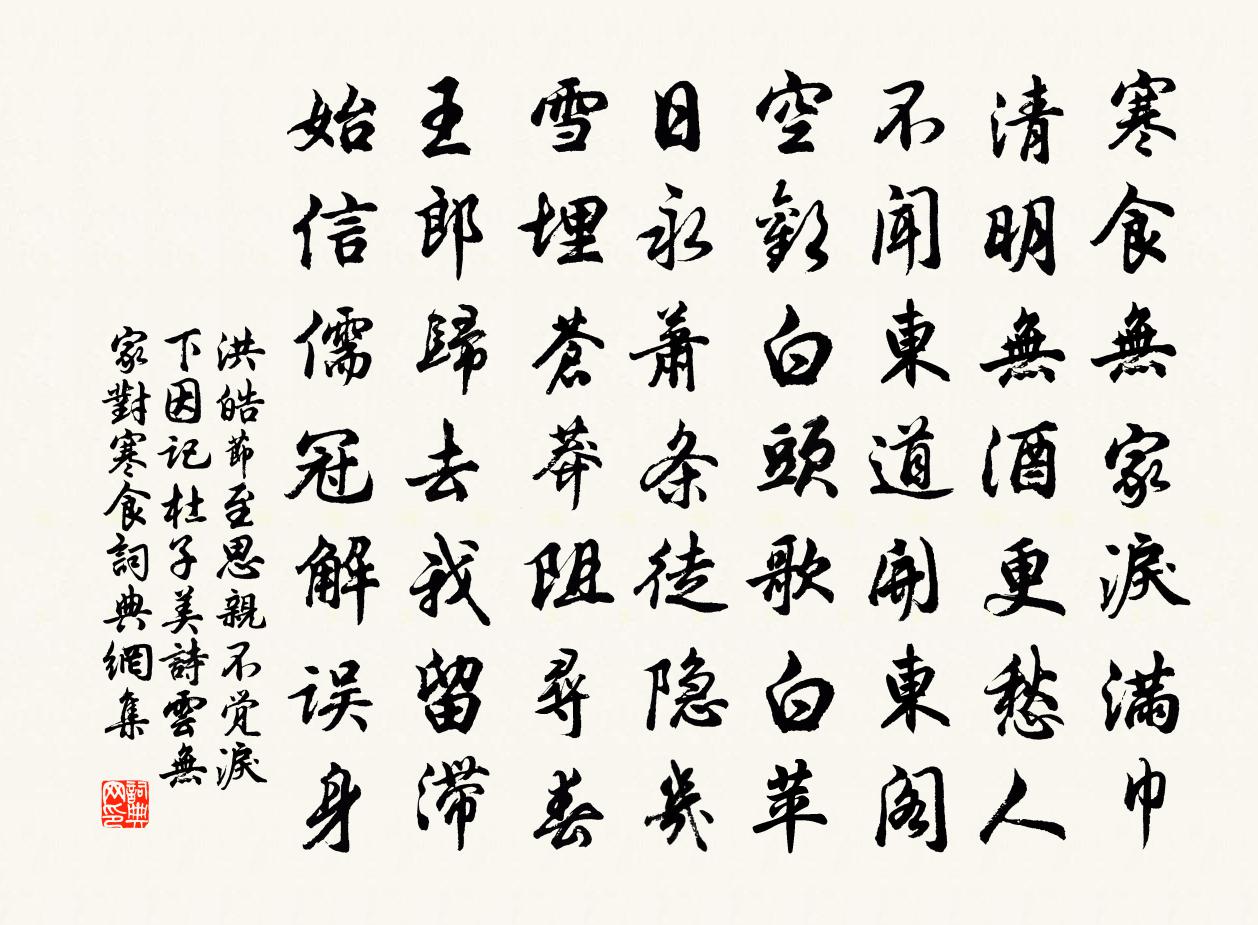 寒食無家淚滿巾
清明無酒更愁人
不聞東道開東閣
空對白頭歌白苹
日永蕭条徒隐几
雪埋蒼莽阻尋春
王郎歸去我留滯
始信儒冠解误身
洪皓節至思親不覚淚
下因記杜子美詩雲無
家對寒食詞典網集
詞典网印